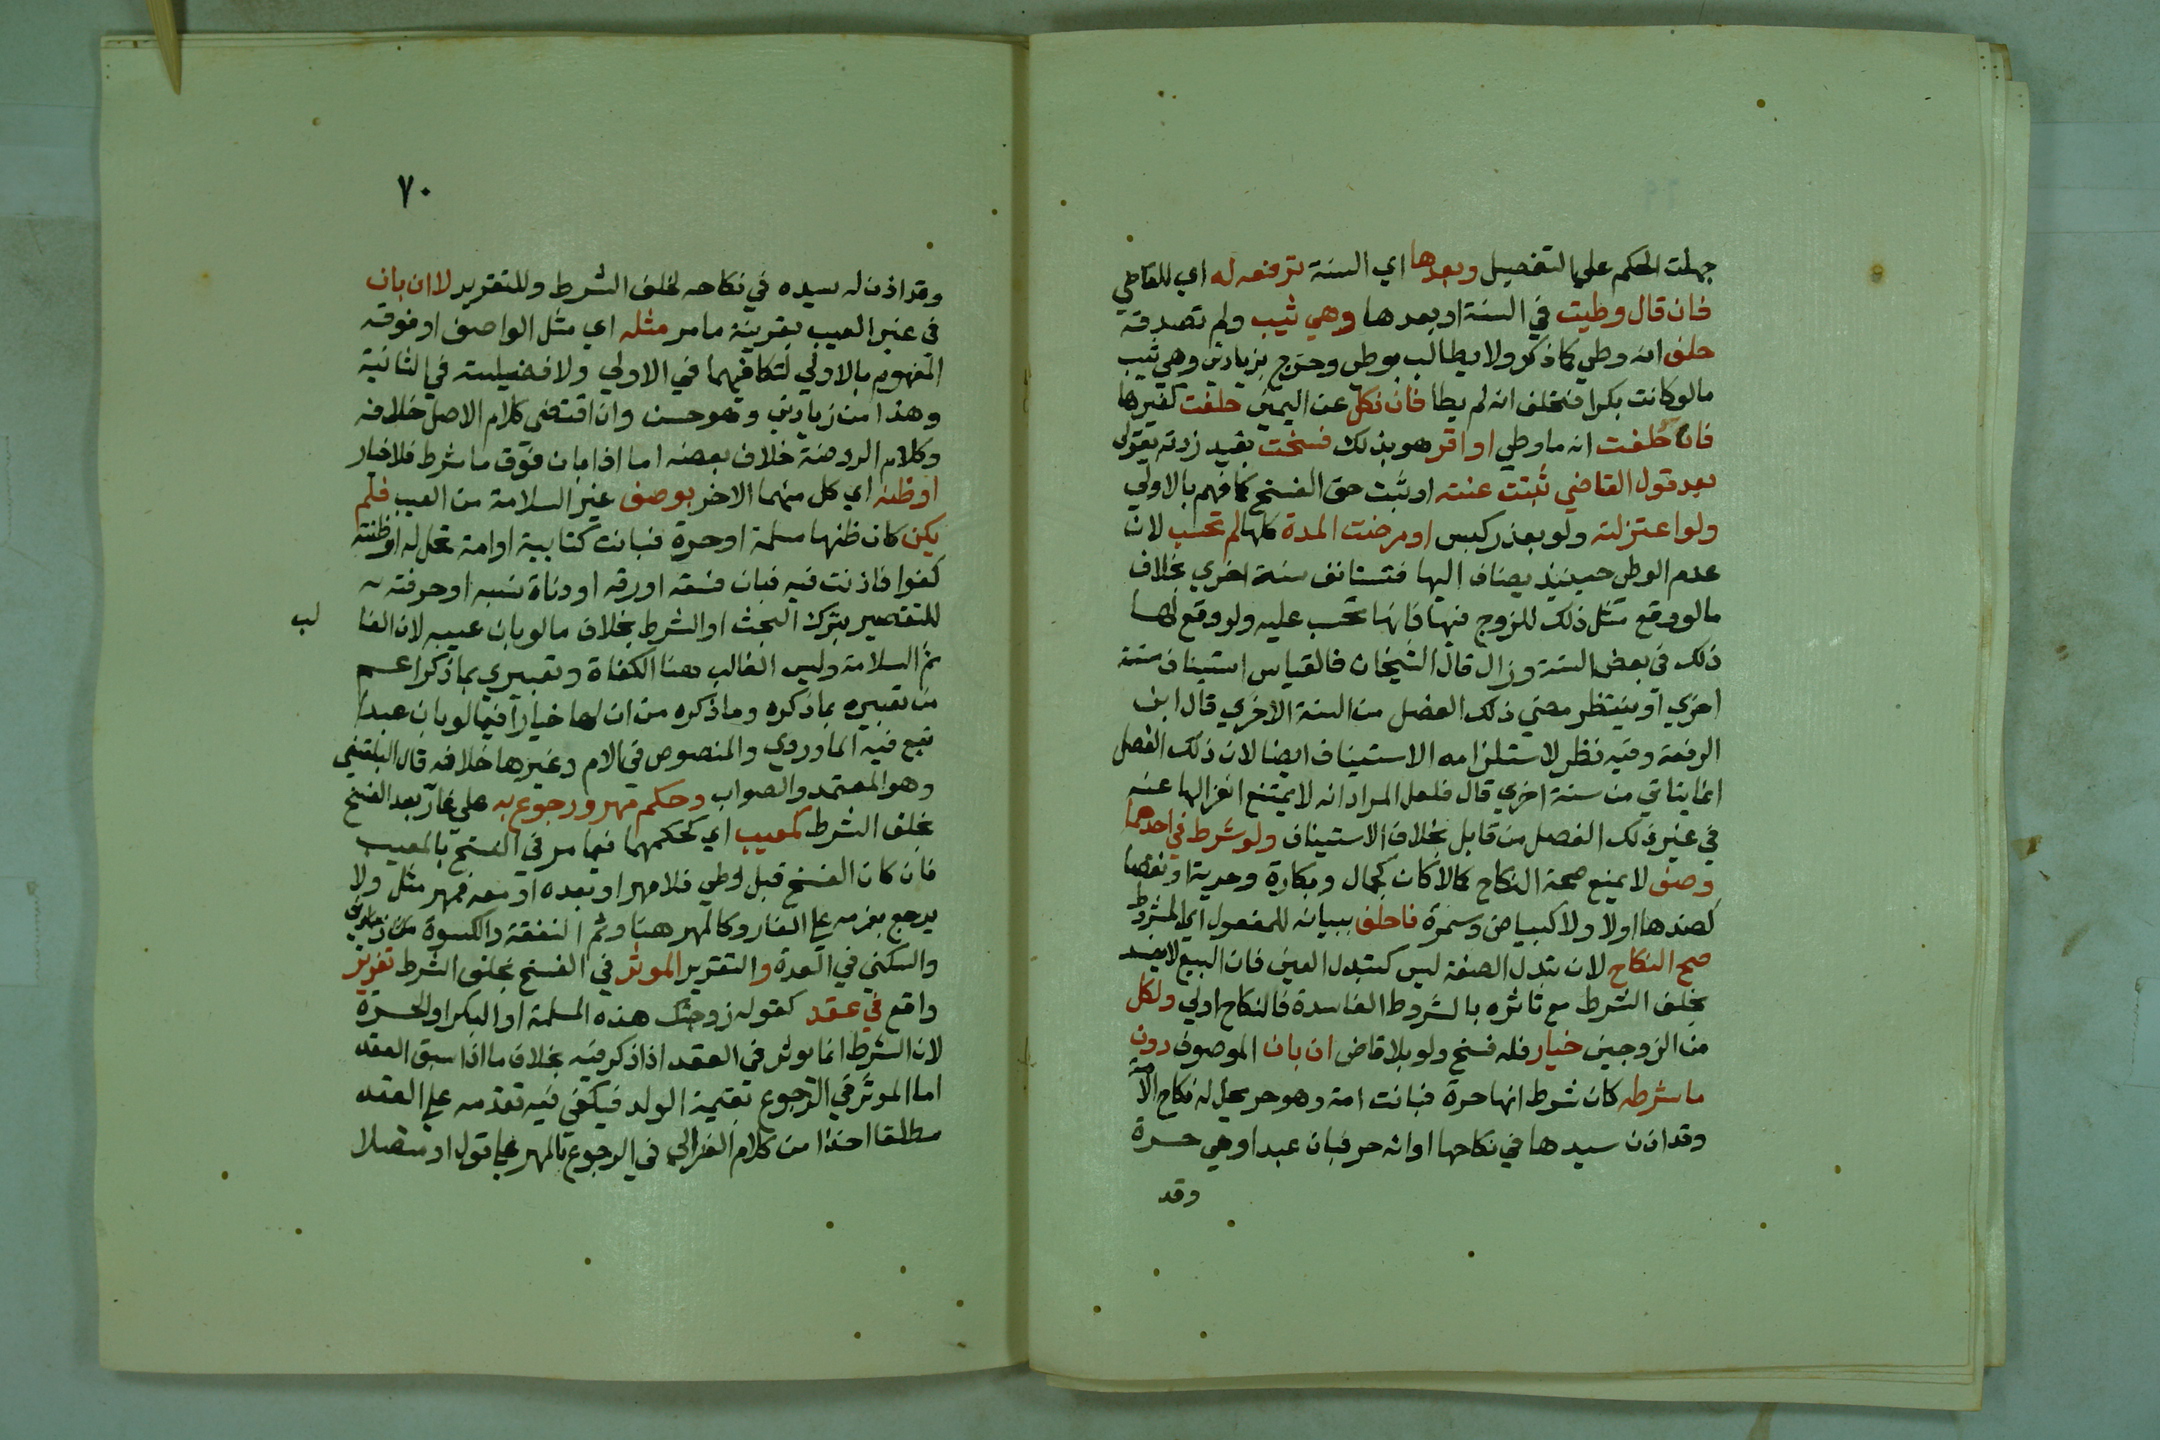 جهلت الحكم على التفصيل وبعدها اي السنة ترفعه له اي للقاضي
فان قال وطيت في السنة او بعدها وهي ثيب ولم تصدقه
حلف انه وطي كما ذكر ولا يطالب بوطي وخرج بزيادتي وهي ثيب
ما لو كانت بكرا فتحلف انه لم يطا فان نكل عن اليمين حلفت كغيرها
فان حلفت انه ما وطي او اقر هو بذلك فسخت بقيد زدته بقولي
بعد قول القاضي ثبتت عنته او ثبت حق الفسخ كما فهم بالاولي
ولو اعتزلته ولو بعذر كحبس او مرضت المدة كلها لم تحسب لان
عدم الوطي حينيذ يضاف اليها فتستانف سنة اخري بخلاف
ما لو وقع مثل ذلك للزوج فيها فانها تحسب عليه ولو وقع لها
ذلك في بعض السنة وزال قال الشيخان فالقياس استيناف سنة
اخري او ينتظر مضي ذلك الفصل من السنة الاخري قال ابن
الرفعة وفيه نظر لاستلزامه الاستيناف ايضا لان ذلك الفصل
انما ياتي من سنة اخري قال فلعل المراد انه لا يمتنع انعزالها عنه
في غير ذلك الفصل من قابل بخلاف الاستيناف ولو شرط في احدهما
وصف لا يمنع صحة النكاح كمالا كان كجمال وبكارة وحرية او نقصا
كضدها اولا ولا كبياض وسمرة فاخلف ببيانه للمفعول اي المشروط
صح النكاح لان تبدل الصفة ليس كتبدل العين فان البيع لا يفسد
بخلف الشرط مع تاثره بالشروط الفاسدة فالنكاح اولي ولكل
من الزوجين خيار فله فسخ ولو بلا قاض ان بان الموصوف دون
ما شرطه كان شرط انها حرة فبانت امة وهو حر يحل له نكاح الامة
وقد اذن سيدها في نكاحها او انه حر فبان عبدا وهي حرة
وقد
٧٠
وقد اذن له سيده في نكاحه لخلف الشرط وللتغرير لا ان بان
في غير العيب بقرينة ما مر مثله اي مثل الواصف او فوقه
المفهوم بالاولي لتكافيهما في الاولي ولافضيلته في الثانية
وهذا من زيادتي وهو حسن وان اقتضى كلام الاصل خلافه
وكلام الروضة خلاف بعضه اما اذا بان فوق ما شرط فلا خيار
او ظنه اي كل منهما الاخر بوصف غير السلامة من العيب فلم
يكن كان ظنها مسلمة او حرة فبانت كتابية او امة تحل له او ظنته
كفوا فاذنت فيه فبان فسقه او رقه او دناة نسبه او حرفته
للتقصير بترك البحث او الشرط بخلاف ما لو بان عيبه لان الغا لب
ثم السلامة وليس الغالب هنا الكفاة وتعبيري بما ذكر اعم
من تعبيره بما ذكره وما ذكره من ان لها خيارا فيما لو بان عبدا
تبع فيه الماوردي والمنصوص في الام وغيرها خلافه قال البلقيني
وهو المعتمد والصواب وحكم مهر ورجوع به على غار بعد الفسخ
بخلف الشرط كمعيب اي كحكمهما فيما مر في الفسخ بالمعيب
فان كان الفسخ قبل وطي فلا مهر او بعده او معه فمهر مثل ولا
يرجع بغرمه على الغار وكالمهر هنا وثم النفقة والكسوة
والسكني في العدة والتغرير الموثر في الفسخ بخلف الشرط تغرير
واقع في عقد كقوله زوجتك هذه المسلمة او البكر او الحرة
لان الشرط انما يوثر في العقد اذا ذكر فيه بخلاف ما اذا سبق العقد
اما الموثر في الرجوع بقيمة الولد فيكفي فيه تقدمه على العقد
مطلقا اخذا من كلام الغزالي في الرجوع بالمهر على قول او متصلا